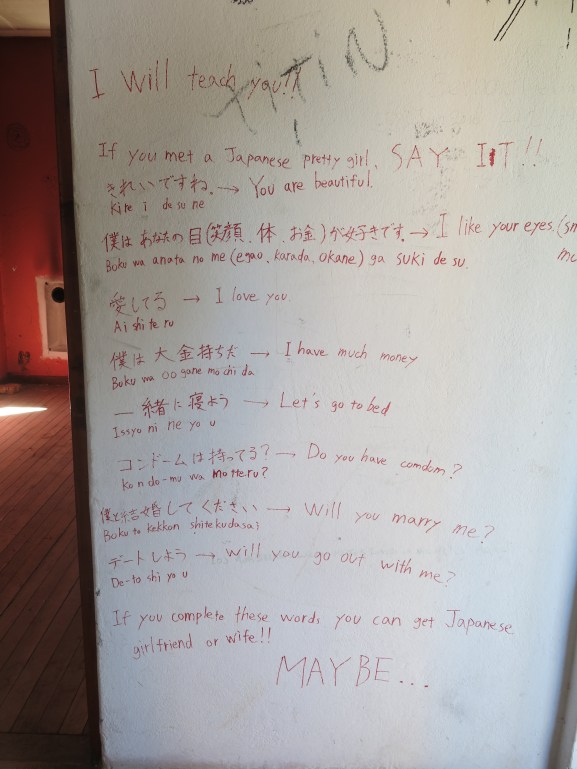 I will teach you!!
If you met a Japanese pretty girl, SAY IT!!
きれいですね。→ You are beautiful.
Kire i de su ne
僕はあなたの目(笑顔、体、お金)が好きです。→ I like your eyes.(sm
Boku wa anata no me (egao, karada, okane) ga suki de su.
愛してる → I love you.
Ai shi te ru
僕は大金持ちだ → I have much money
Boku wa oo gane mo chi da
一緒に寝よう → Let's go to bed
Issyo ni ne yo u
コンドームは持ってる? → Do you have comdom?
ko n do-mu wa motteru?
僕と結婚してください → Will you marry me?
Boku to kekkon shite kudasai
デートしよう → will you go out with me?
De-to shi yo u
If you complete these word, you can get Japanese
girlfriend or wife!!
MAYBE...